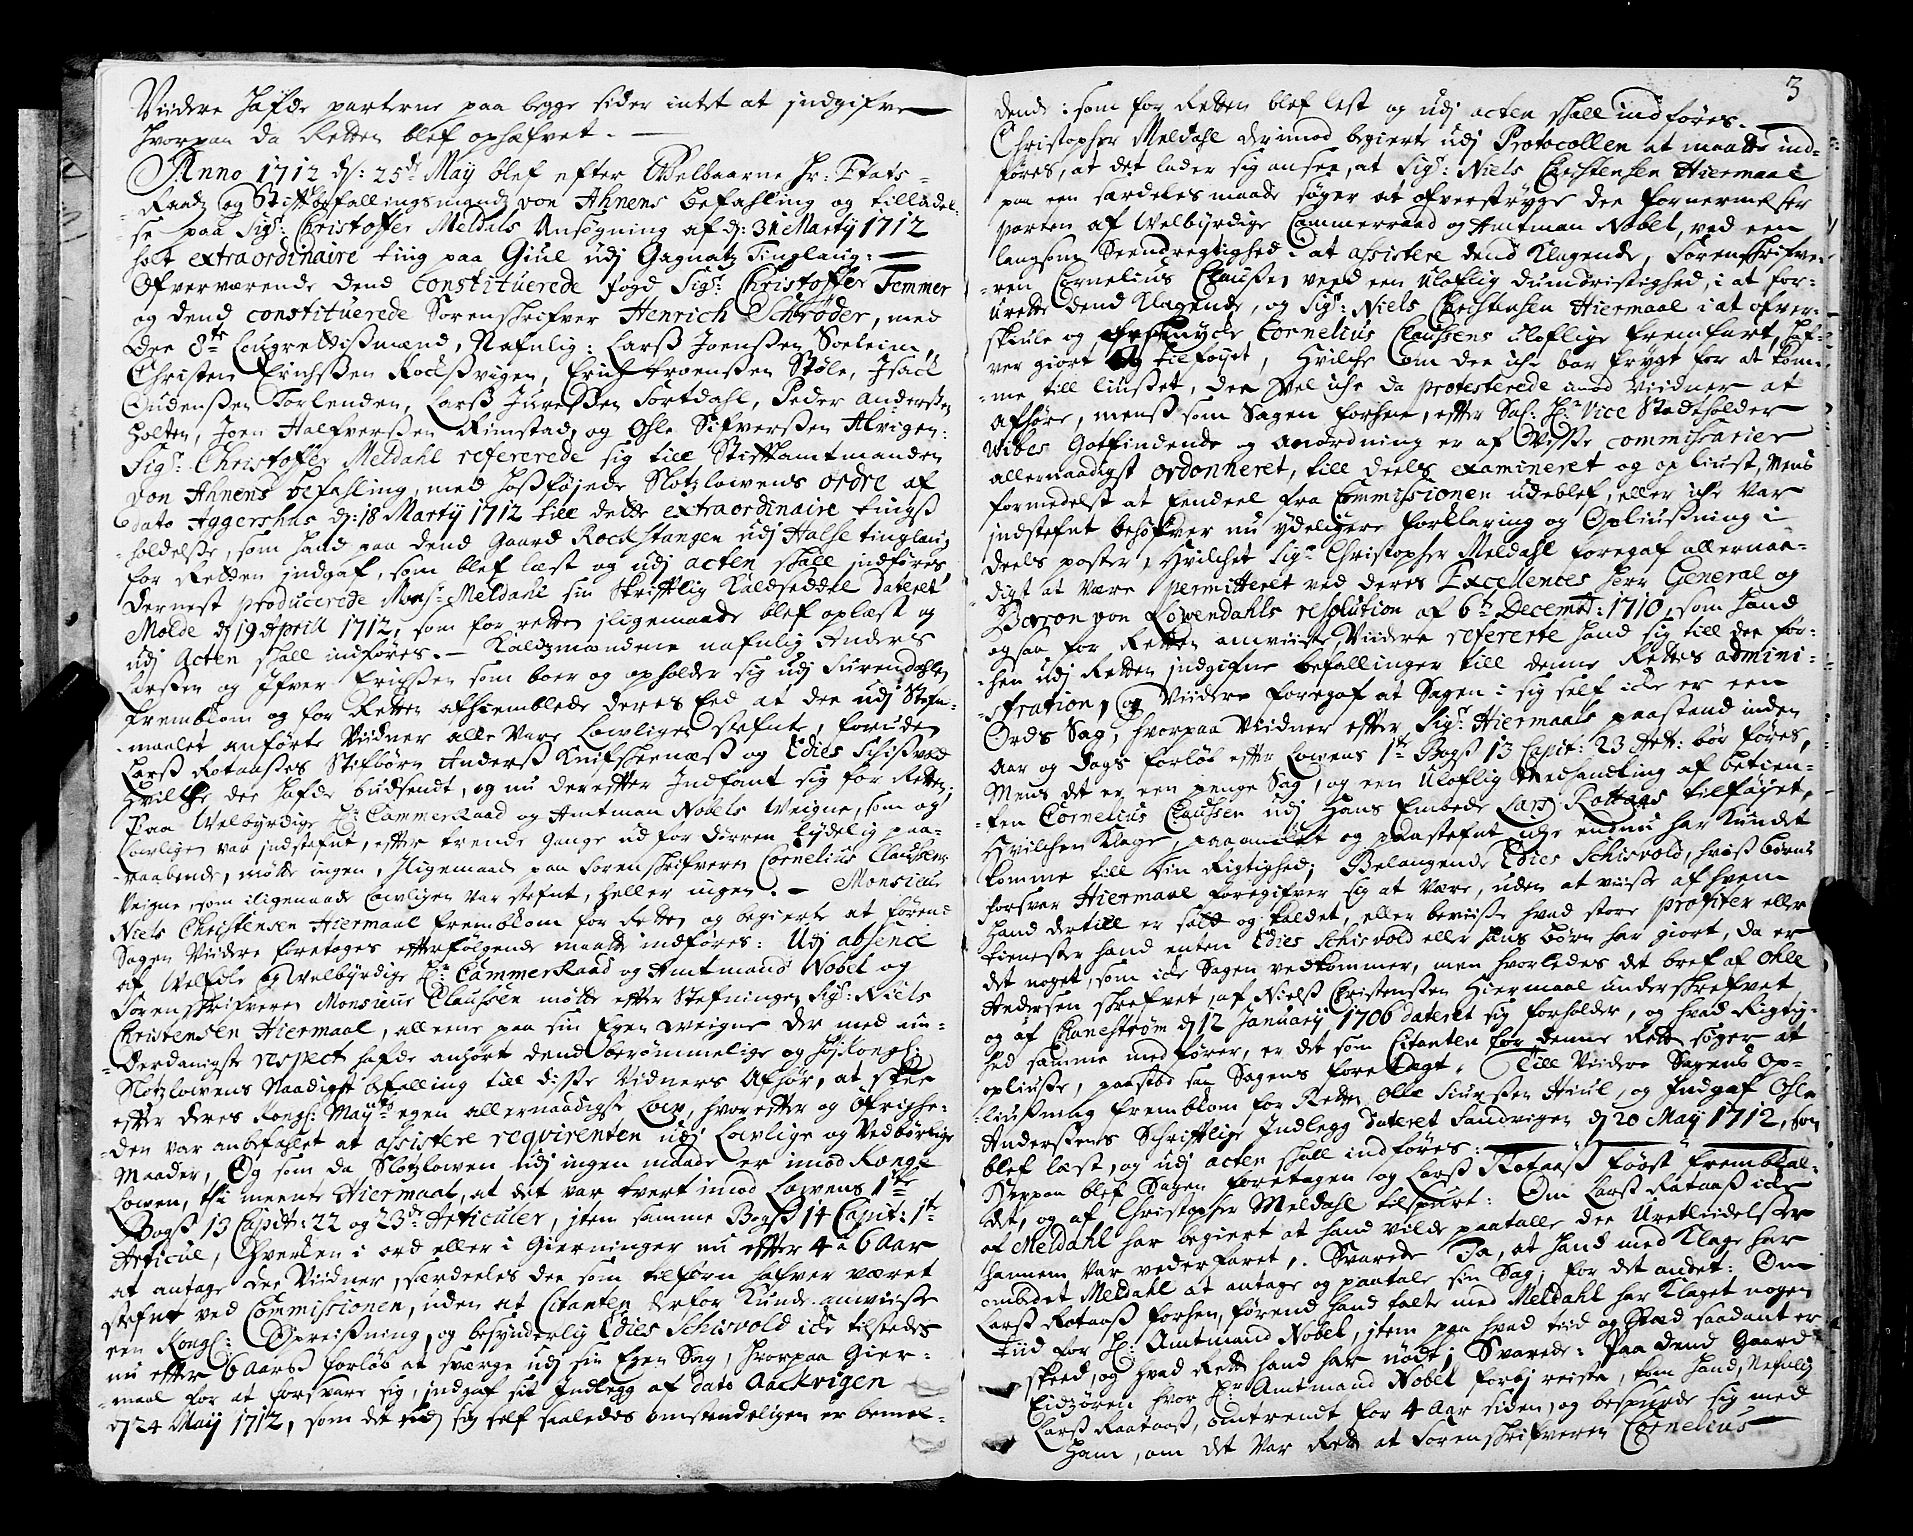 Viidere hafde parterne paa begge sider intet at indgifve
hvorpaa da Retten blef ophæfvet. —
Anno 1712 d: 25d May blef efter Welbaarne Hr: Etats-
Raadz og Stiftbefallingsmandz von Ahnens befahling og tilladel-
se paa Sigr: Christoffer Meldals Ansøgning af d: 31 Marty 1712
holt extraordinaire ting paa Giul udj Gagnatz Tinglaug: —
Ofverværende dend constituerede fogd Sigr: Christoffer Temmer
og dend constituerede Sorenskrifver Henrich Schrøder, med
dee 8te Laugrettismænd, Nafnlig: Larss Joenssen Soeleim,
Christen Erichssen Rochssvigen, Erich Arvenssen Støle, Isack
Oudenssen Torlenden, Larss Juressen Tortdahl, Peder Anderssen
Holten, Joen Halfverssen Rimstad, og Ohle Sifverssen Alvigen:
Sigr: Christoffer Meldahl refererede sig till Stiftamtmanden
von Ahnens befahling, med hossføjede Slotzlowens ordre af
dato Aggershus d: 18 Marty 1712 till dette extraordinaire tings
holdelse, som hand paa dend Gaard Rochstangen udj Halse tinglaug
for Retten indgaf, som blef læst og udj acten skall indføres,
dernest producerede Monsr: Meldahl sin skrifftlig Kaldseddel dateret
Molde d 19 Aprill 1712, som for retten iligemaade blef oplæst og
udj Acten skall indføres. — Kaldzmændene nafnlig Anders
Larssen og Ifver Erichssen som boer og opholder sig udj Surendahlen
fremblom og for Retten afhiemblede deres Eed at dee udj Stefn-
maalet anførte Vidner alle vare lowligen stefnte, foruden
Larss Rotaasses Stifbørn Anderss Knifsheenæss og Edies Schissvold
hvilche dee hafde budsendt, og nu derefter Indfant sig for Retten;
Paa Welbyrdige Hr: CammerRaad og Amtman Nobels Veigne, som og
lowligen var indstefnt, efter trende gange ud for dørren lydelig paa-
raabende, møtte ingen, Iligemaade paa Sorenskrifveren Cornelius Claussens
Veigne, som iligemaade lowligen var stefnt, heller ingen. — Monsieur
Niels Christensen Hiermaal fremblom for Retten og begierte at førend
Sagen Viidere foretoges efterfølgende maatte indføres: Udj absence
af Welædle og Welbyrdige Hr: CammerRaad og Amtmand Nobel og
Sorenskrifveren Monsieur Claussen møtte efter Stefningen Sigr: Niels
Christensen Hiermaal, alleene paa sin Egen Weigne der med un-
derdanigste respect hafde anhørt dend berømmelige og Høj Kongl:
Slotzlowens Naadigst befalling till disse Vidners Afhør, at skee
efter deres Kongl: Mayts egen allernaadigste Low, hvorefter og Øfrighe-
den var anbefahlet at assistere reqvirenten udj Lowlige og Vedbørlige
Maader, Og som da Slotzlowen udj ingen maade er imod Konge
Lowen, thi meente Hiermaal, at det var tvert imod Lowens 1te
Bogs 13 Capit: 22 og 23de Articuler, item samme Bogs 14 Capit: 1te
Articul, Hverken i ord eller i Gierninger nu efter 4 à 6 Aar
at antage dee Viidner, særdeeles dee som tilforn hafver været
stefnt ved Commissionen, uden at Citanten derfor Kunde anviisse
een Kongl: Opreissning, og besynderlig Edies Schisvold icke tilstedes
nu efter 6 Aarss forløb at sværge udj sin Egen Sag, Hvorpaa Hier-
maal for at forsvare sig, indgaf sit Indlegg af dato Aackvigen
d 24 May 1712, som det udj sig self saaledes omstendeligen er bemel-
3
dende: som for Retten blef lest og udj acten skall indføres. —
Christopher Meldahl derimod begierte udj Protocollen at maatte ind-
føres, at det lader sig ansee, at Sigr: Niels Christensen Hiermaal
paa een særdeles maade søger at ofverstryge dee fornermelser
parten af Welbyrdige Cammerraad og Amtman Nobel, ved een
langsom Seendregtighed i at assistere dend Klagende, Sorenskrifve-
ren Cornelius Claussen, ved een uloflig dumdristighed, i at for-
urette dend Klagende, og Sigr: Niels Christensen Hiermaal i at ofver-
skiule og Cornelius Claussens uloflige fremfart, haf-
ver giort og tilføyet, hvilche om dee iche bar frygt for at kom-
me till liusset, dee Vel iche da protesterede imod Viidner at
afhøre, menss som Sagen forhen, efter Sal: Hr: Vice Stadtholder
Wibes Gotfindende og anordning er af Visse commissarier
allernaadigst ordonneret, till deels examineret og opliust, Mens
formedelst at Eendeel fra Commissionen udeblef, eller iche Var
indstefnt behøfver nu ydeligere forklaring og Opliussning i
deels poster, Hvilchet Sigr: Christopher Meldahl foregaf allernaa-
digst at være permitteret ved deres Excellences Herr General og
Barron von Løwendahls resolution af 6te Decemb: 1710, som hand
ogsaa for Retten anviiste Viidere refererte hand sig till dee for-
hen udj Retten indgifne befallinger till denne Rettes admini-
stration, og Viidere foregaf at Sagen i sig self icke er een
Ords Sag, hvorpaa Viidner efter Sigr: Hiermaals paastand inden
Aar og Dags forløb efter Lowens 1te Bogs 13 Capit: 23 Art: bør føres,
Mens det er een penge Sag, og een uloflig medhandling af betien-
ten Cornelius Claussen udj Hans Embede Larss Rottaas tilføjet,
Hvilchen Klage, paaanchet og paastefnt iche endnu har Kundet
komme till sin Rigtighed; Belangende Edies Schisvold, hviss børns
forsvar Hiermaal foregifver sig at være, uden at viisse af hvem
hand dertill er satt og kaldet, eller beviisse hvad store profiter eller
tienester hand enten Edies Schisvold eller hans børn har giort, da er
det noget, som icke Sagen vedkommer, men hvorledes det bref af Ohle
Andersen skrefvet, af Nielss Christenssen Hiermaal underskrefvet
og af Clanestrøm d 12 January 1706 dateret sig forholder, og hvad Rigtig-
hed samme medfører, er det som Citanten for denne Rett søger at
opliusse, paastod saa Sagens foretagt. Till Viidere Sagens Op-
liussning fremblom for Retten Olle Siurssen Hiul, og Indgaf Ohle
Anderssens Skrifftlige Indlegg dateret Sandvigen d 20 May 1712, som
blef læst, og udj acten skall indføres: —
Herpaa blef Sagen foretagen og Larss Rotaass først frembkal-
det, og af Christopher Meldahl tilspurt: Om Larss Rotaass icke
af Meldahl har begiert at hand vilde paatalle dee Uretleedelsser
hannem var vederfaret, . Svarede Ja, at hand med Klage har
ombedet Meldahl at antage og paatale sin Sag; for det andet: Om
Larss Rotaass forhen, førend hand talte med Meldahl har Klaget nogen
tiid for Hr: Amtmand Nobel, item paa hvad tiid og Stæd saadant er
skeed, og hvad Rett hand har nødt; Svarede: Paa dend Gaard
Eidzøren hvor Hr Amtmand Nobel forbj reiste, kom hand, Nefnlig
Larss Raataass, omtrendt for 4 Aar siden, og bespurde sig med
Ham, om det Var Rett at Sorenskrifveren Cornelius